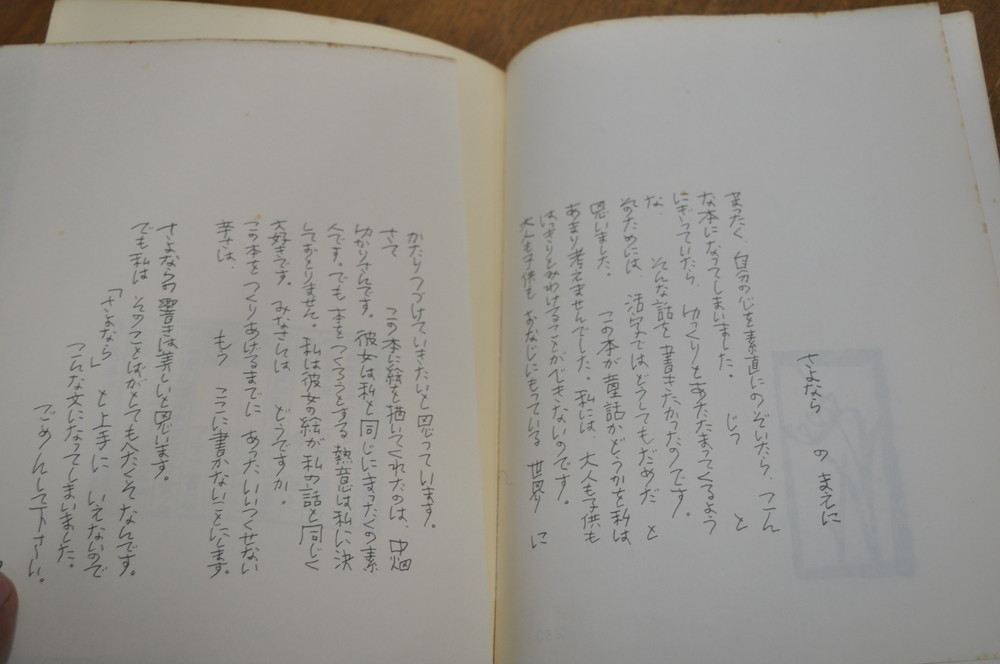 さよなら の まえに
まったく、自分の心を素直にのぞいたら、こん
な本になってしまいました。 じっ と
にぎっていたら、ゆっくりとあたたまってくるよう
な、 そんな話を書きたかったのです。
そのためには、活字ではどうしてもだめだ と
思いました。 この本が童話かどうかを私は
あまり考えませんでした。私には、大人も子供も
はっきりとみわけることができないのです。
大人も子供も おなじにもっている 世界 に
かたりつづけていきたいと思っています。
さて この本に絵を描いてくれたのは、中畑
ゆかりさんです。彼女は私と同じにまったくの素
人です。でも本をつくろうとする 熱意は私に決
しておとりません。私は彼女の絵が私の話と同じく
大好きです。みなさんは どうですか。
この本を つくりあげるまでに あったいいつくせない
辛さは、 もう ここに書かないことにします。
さよならの響きは美しいと思います。
でも私は そのことばがとてもへたくそなんです。
「さよなら」 と上手に いえないので
こんな文になってしまいました。
ごめんして下さーい。